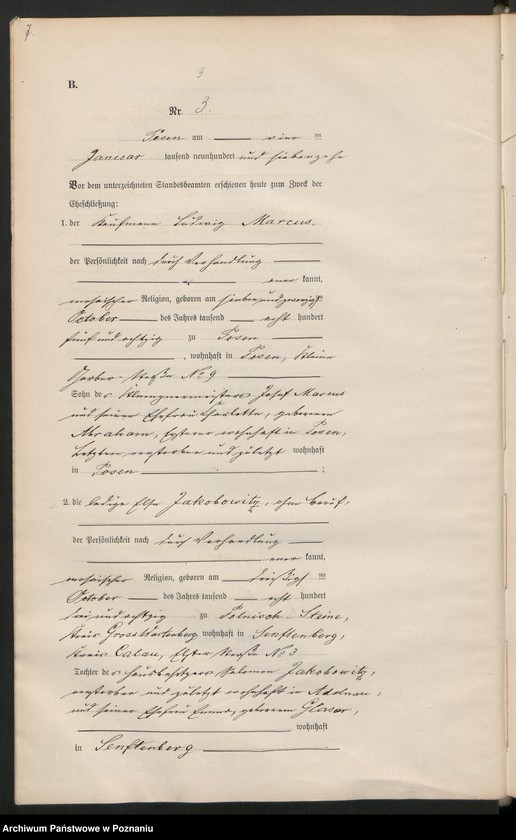 7.
3
B.
Nr. 3.
Posen am vier ten
Januar tausend neunhundert und siebenzehn
Vor dem unterzeichneten Standesbeamten erschienen heute zum Zweck der
Eheschließung:
1. der Kaufmann Ludwig Marcus,
der Persönlichkeit nach durch Verhandlung
aner kannt,
mosaischer Religion, geboren am siebenundzwanzigsten
October des Jahres tausend acht hundert
fünfundachtzig zu Posen
, wohnhaft in Posen, Kleine
Gerber-Straße No 9
Sohn des Klempnermeisters Josef Marcus
und seiner Ehefrau Charlotte, geborenen
Abraham, Ersterer wohnhaft in Posen,
Letztere verstorben und zuletzt wohnhaft
in Posen ;
2. die ledige Else Jakobowitz, ohne Beruf,
der Persönlichkeit nach durch Verhandlung
aner kannt,
mosaischer Religion, geboren am dreißigs ten
October des Jahres tausend acht hundert
dreiundachtzig zu Polnisch-Steine,
Kreis Gross Wartenberg, wohnhaft in Senftenberg,
Kreis Calau, Elster Straße No 3
Tochter des Hausbesitzers Salomon Jakobowitz,
verstorben und zuletzt wohnhaft in
und seiner Ehefrau Emma, geborenen Glaser,
wohnhaft
in Senftenberg
Archiwum Państwowe w Poznaniu